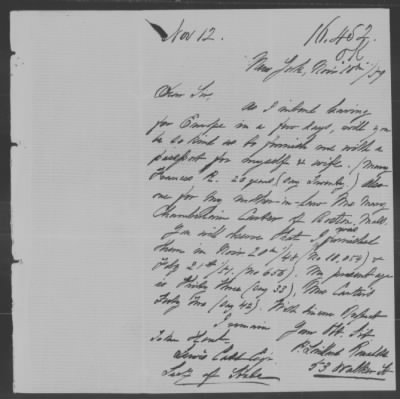 Nov 12.
16.452.
New York, Nov 10th /57
Dear Sir,
As I intend leaving
for Europe in a few days, will you
be so kind as to furnish me with a
passport for myself & wife. (Mary
Frances R. 20 years, (say Twenty,) also
one for my mother-in-law Mrs Mary
Chamberlain Carter of Boston, Mass.
You will observe that I was furnished
them in Nov 20th/48 (No 10,054) &
Feby 21st/57. (No 656). My present age
is Thirty three (say 33), Mrs Carter's
Forty Two (say 42). With sincere Respect
I remain Your Obt. Svt
53 Walker St
Lewis Cass Esqr
Secty of State